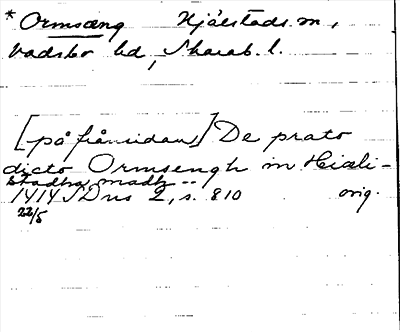 * Ormsæng Hjälstads sn,
Vadsbo hd, Skarab. l.
[på frånsidan] De prato
dicto Ormsengh in Hiæli-
stadha madh --
1414 SDns 2, s. 810 orig.
22/5